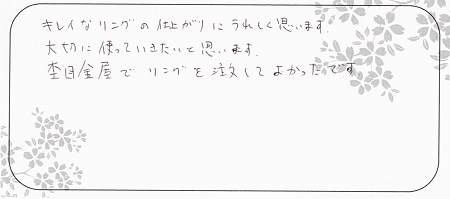 キレイなリングの仕上がりにうれしく思います.
大切に使っていきたいと思います.
杢目金屋でリングを注文してよかったです